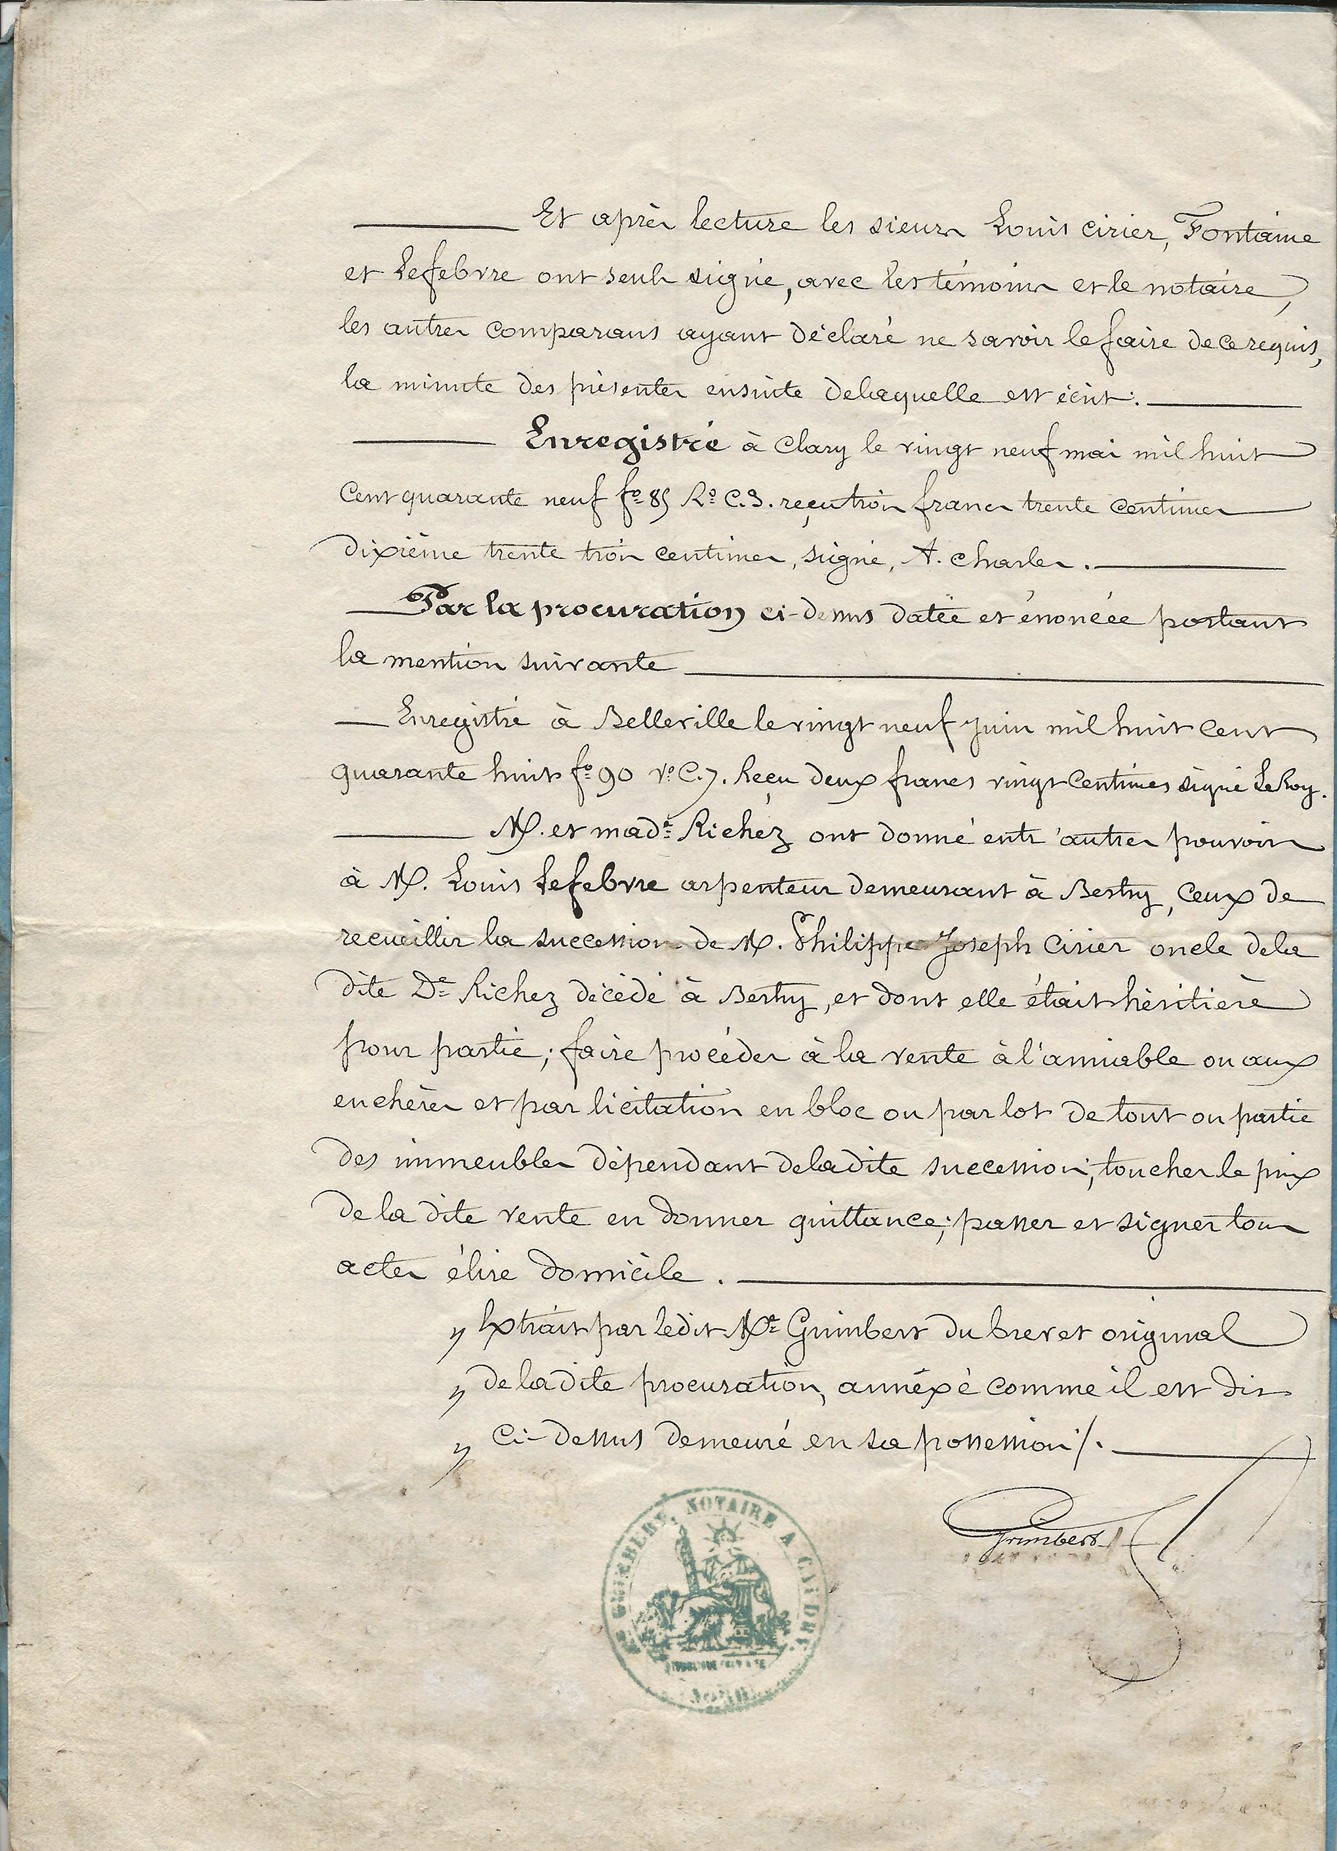 Et après lecture les sieurs Louis Cirier, Fontaine
et Lefebvre ont seuls signé, avec les témoins et le notaire,
les autres comparans ayant déclaré ne savoir le faire de ce requis,
la minute des présentes ensuite de laquelle est écrit:
Enregistré à Clary le vingt neuf mai mil huit
cent quarante neuf fo. 85 Ro. C. 3. reçu trois francs trente centimes
dixième trente trois centimes, signé, A. Charles.
Par la procuration ci-dessus datée et énoncée portant
la mention suivante
Enregistré à Belleville le vingt neuf Juin mil huit cent
quarante huit fo. 90 Vo. C. 7. Reçu deux francs vingt centimes signé LeRoy.
M. et made. Richez ont donné entr'autres pouvoirs
à M. Louis Lefebvre arpenteur demeurant à Bertry, ceux de
recueillir la succession de M. Philippe Joseph Cirier oncle de la
dite De. Richez décédé à Bertry, et dont elle était héritière
pour partie; faire procéder à la vente à l'amiable ou aux
enchères et par licitation en bloc ou par lot de tout ou partie
des immeubles dépendant de la dite succession; toucher le prix
de la dite vente en donner quittance; passer et signer tous
actes élire domicile.
" Extrait par ledit Me. Guimbert du brevet original
" de la dite procuration, annéxé comme il est dit
" ci-dessus demeuré en sa possession /.
Guimbert
Me GUIMBERT, NOTAIRE A CAUDRY.
NORD